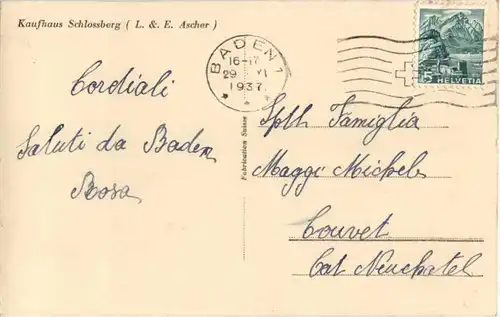 Kaufhaus Schlossberg ( L. & E. Ascher )
BADEN 1
16-17
29 VI
1937
5 HELVETIA
Cordiali
Saluti da Baden
Rosa
Fabrication Suisse
Spll Famiglia
Maggi Michele
Couvet
Cat Neuchatel